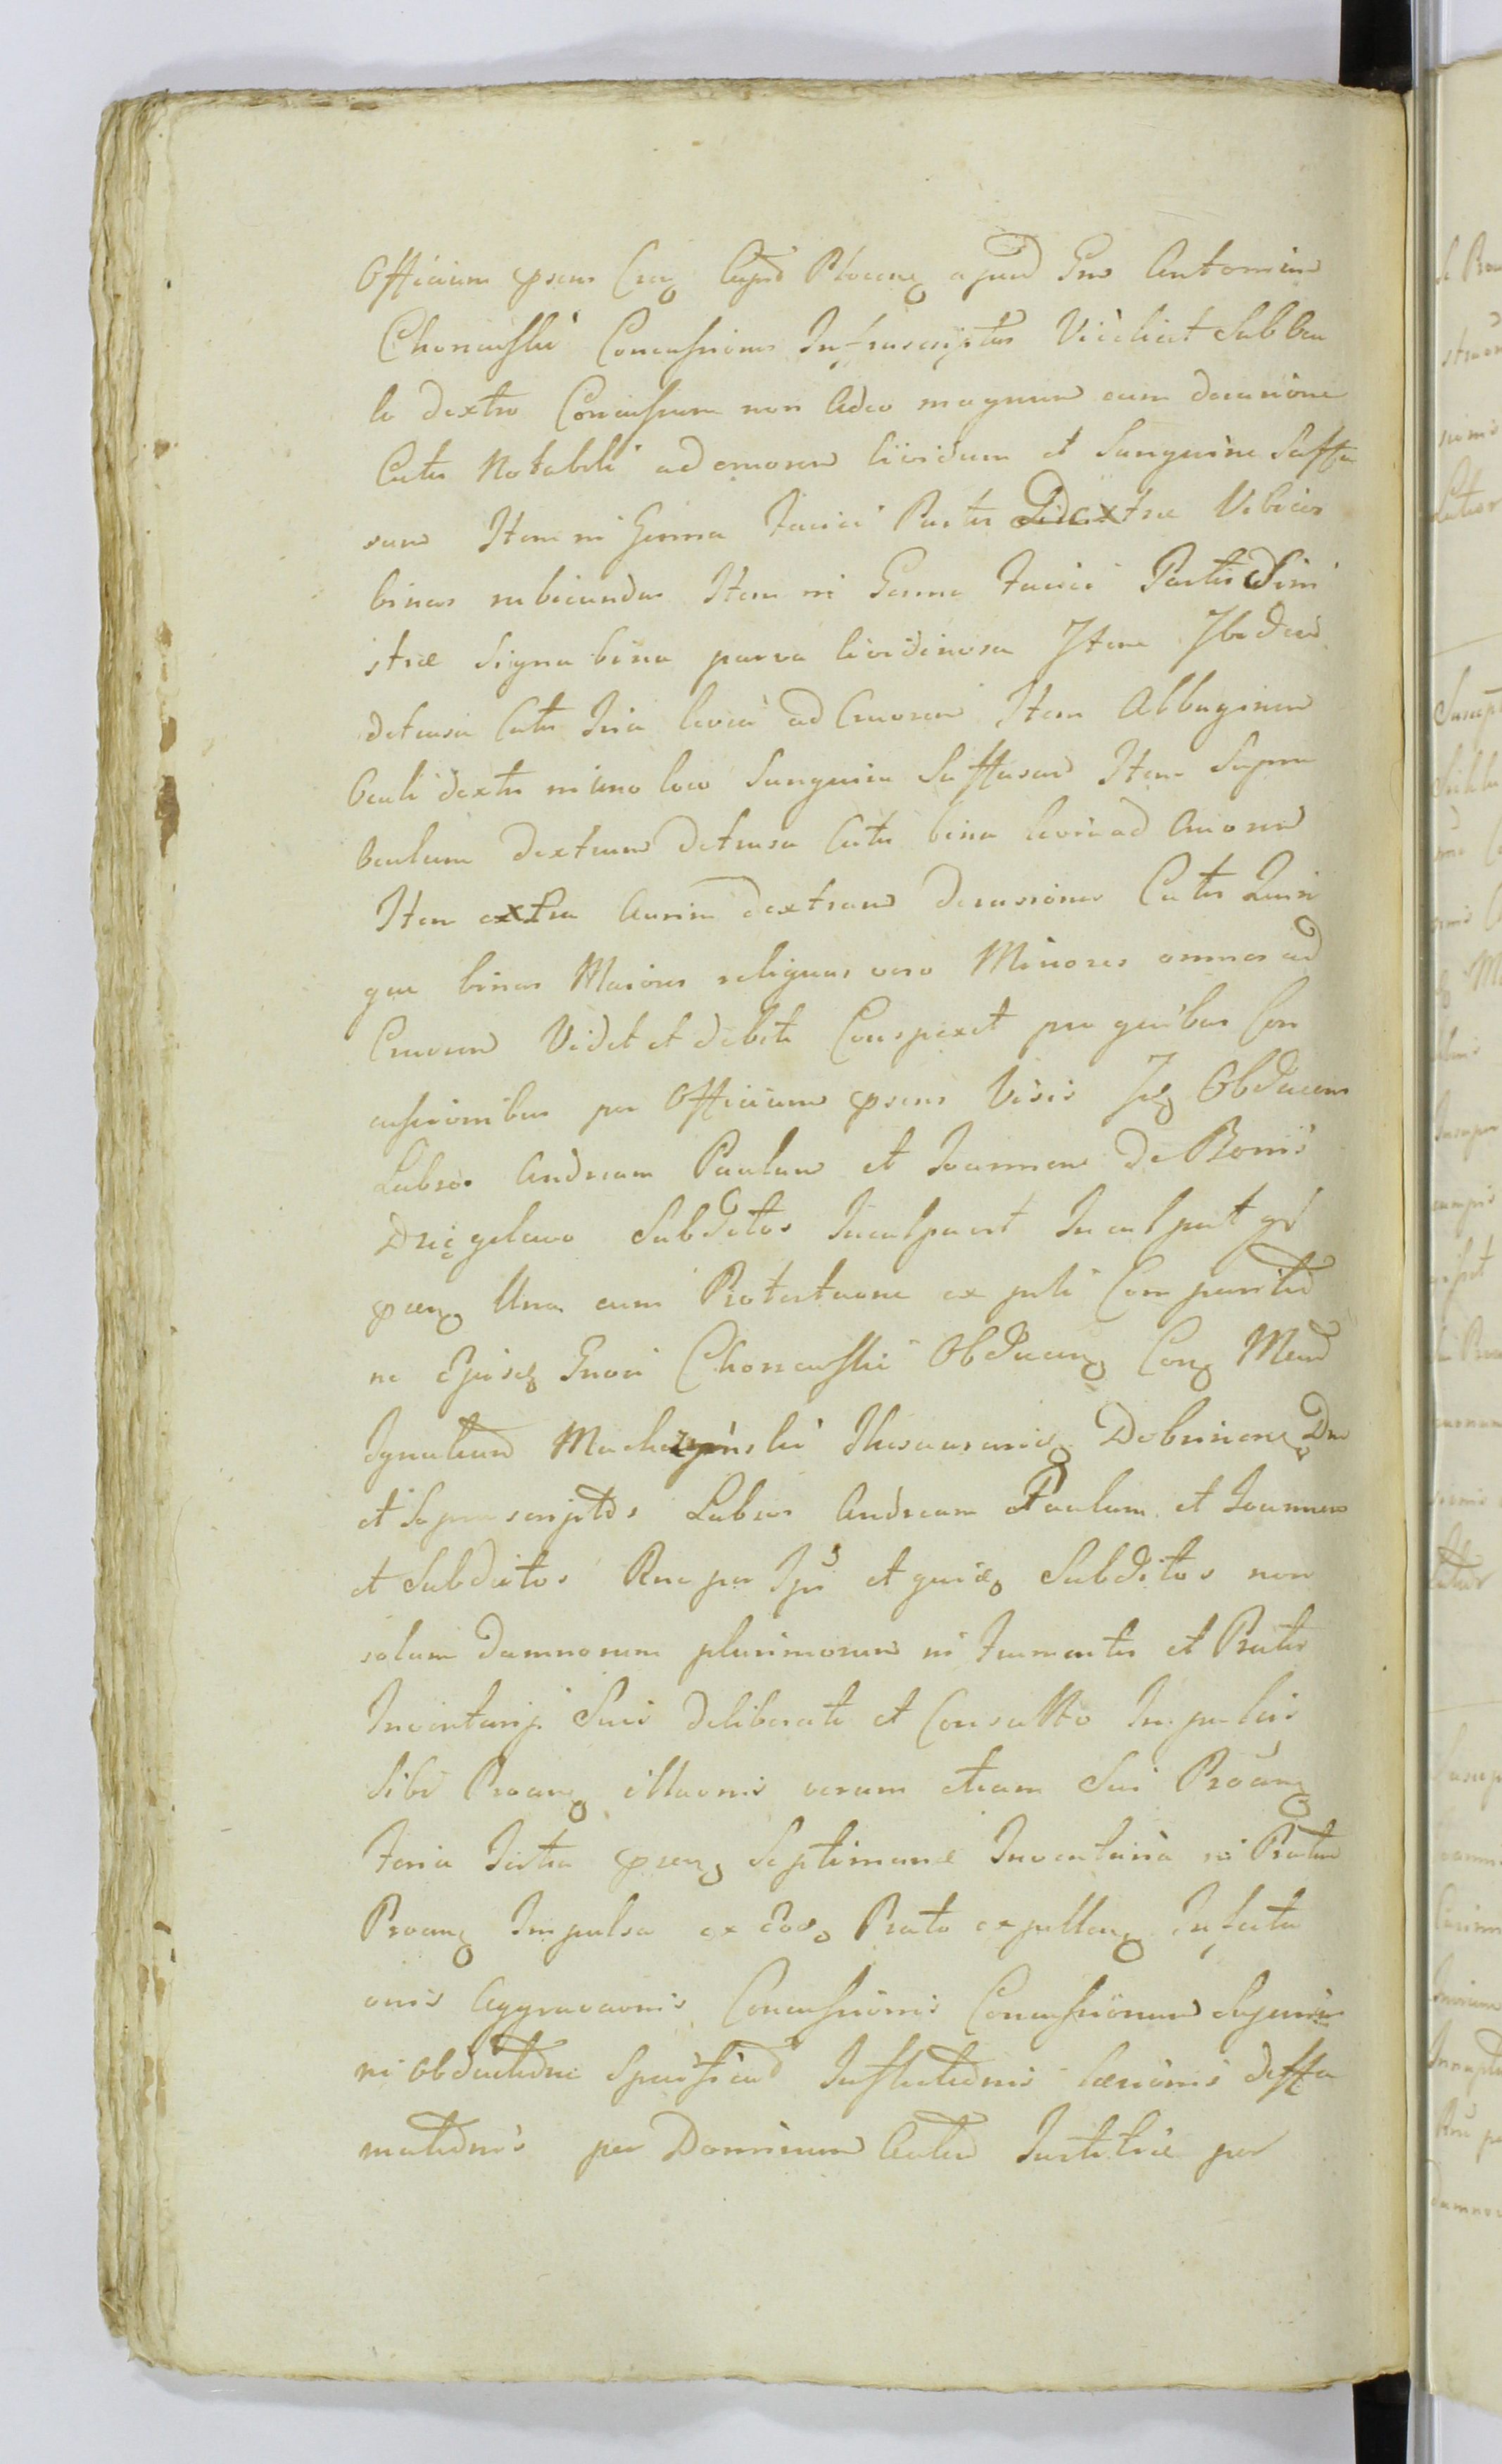 Officium psens Crae Capt Plocens apud Gnv Antonium
Choncuski Concussiones Infrascriptas Videlicet Sub Ocu
lo dextro Concussum non Adeo magnum cum decusione
Cutis Notabili ad cruorem lividum et Sanguine Suffu
sum Item in Genna faciei Partis Dextrae Vibices
binas rubicundas Item in Genna faciei Partis Sini
strae Signa bina parva lividinosa Item Ibidem
detrusa Cutis Tria levia ad Cruorem Item Albuginem
Oculi dextri in uno loco Sanguine Suffusam Item Supra
Oculum dextrum detrusa Cutis bina levia ad Cruorem
Item extra Aurim dextram decusiones Cutis Quin
que binas Maiores reliquas vero Minores omnes ad
Cruorem Vidit et debite Conspexit pro quibus Con
cussionibus per Officium psens Visis Obducens
Labros Andream Paulum et Joannem De Bonis
Dzięgelewo Subditos Inculpavit Inculpat qs
psen Una cum Protestaone ex pti Comparitio
ne Ejusq Gnosi Choncuski Obducen Con Mend
Ignatium Thesaurario Dobrinen Dno
et Suprascriptos Labros Andream Paulum et Joannem
et Subditos Rne per Ipm et Subditos non
solum damnorum plurimorum in frumentis et Pratis
Inventarij Suis deliberate et Consulto Impulsis
Sibi Proan illaonis verum etiam Sui Proan
Feria Tertia psen Septimanae Inventaria in Pratum
Proan Impulsa ex Eoo Prato expellen Infesta
onis Aggravaonis Concussionis Concussionum Superius
in obductione Specificat Inflictionis laesionis diffa
mationis per Dominum Actum Iustitiae per